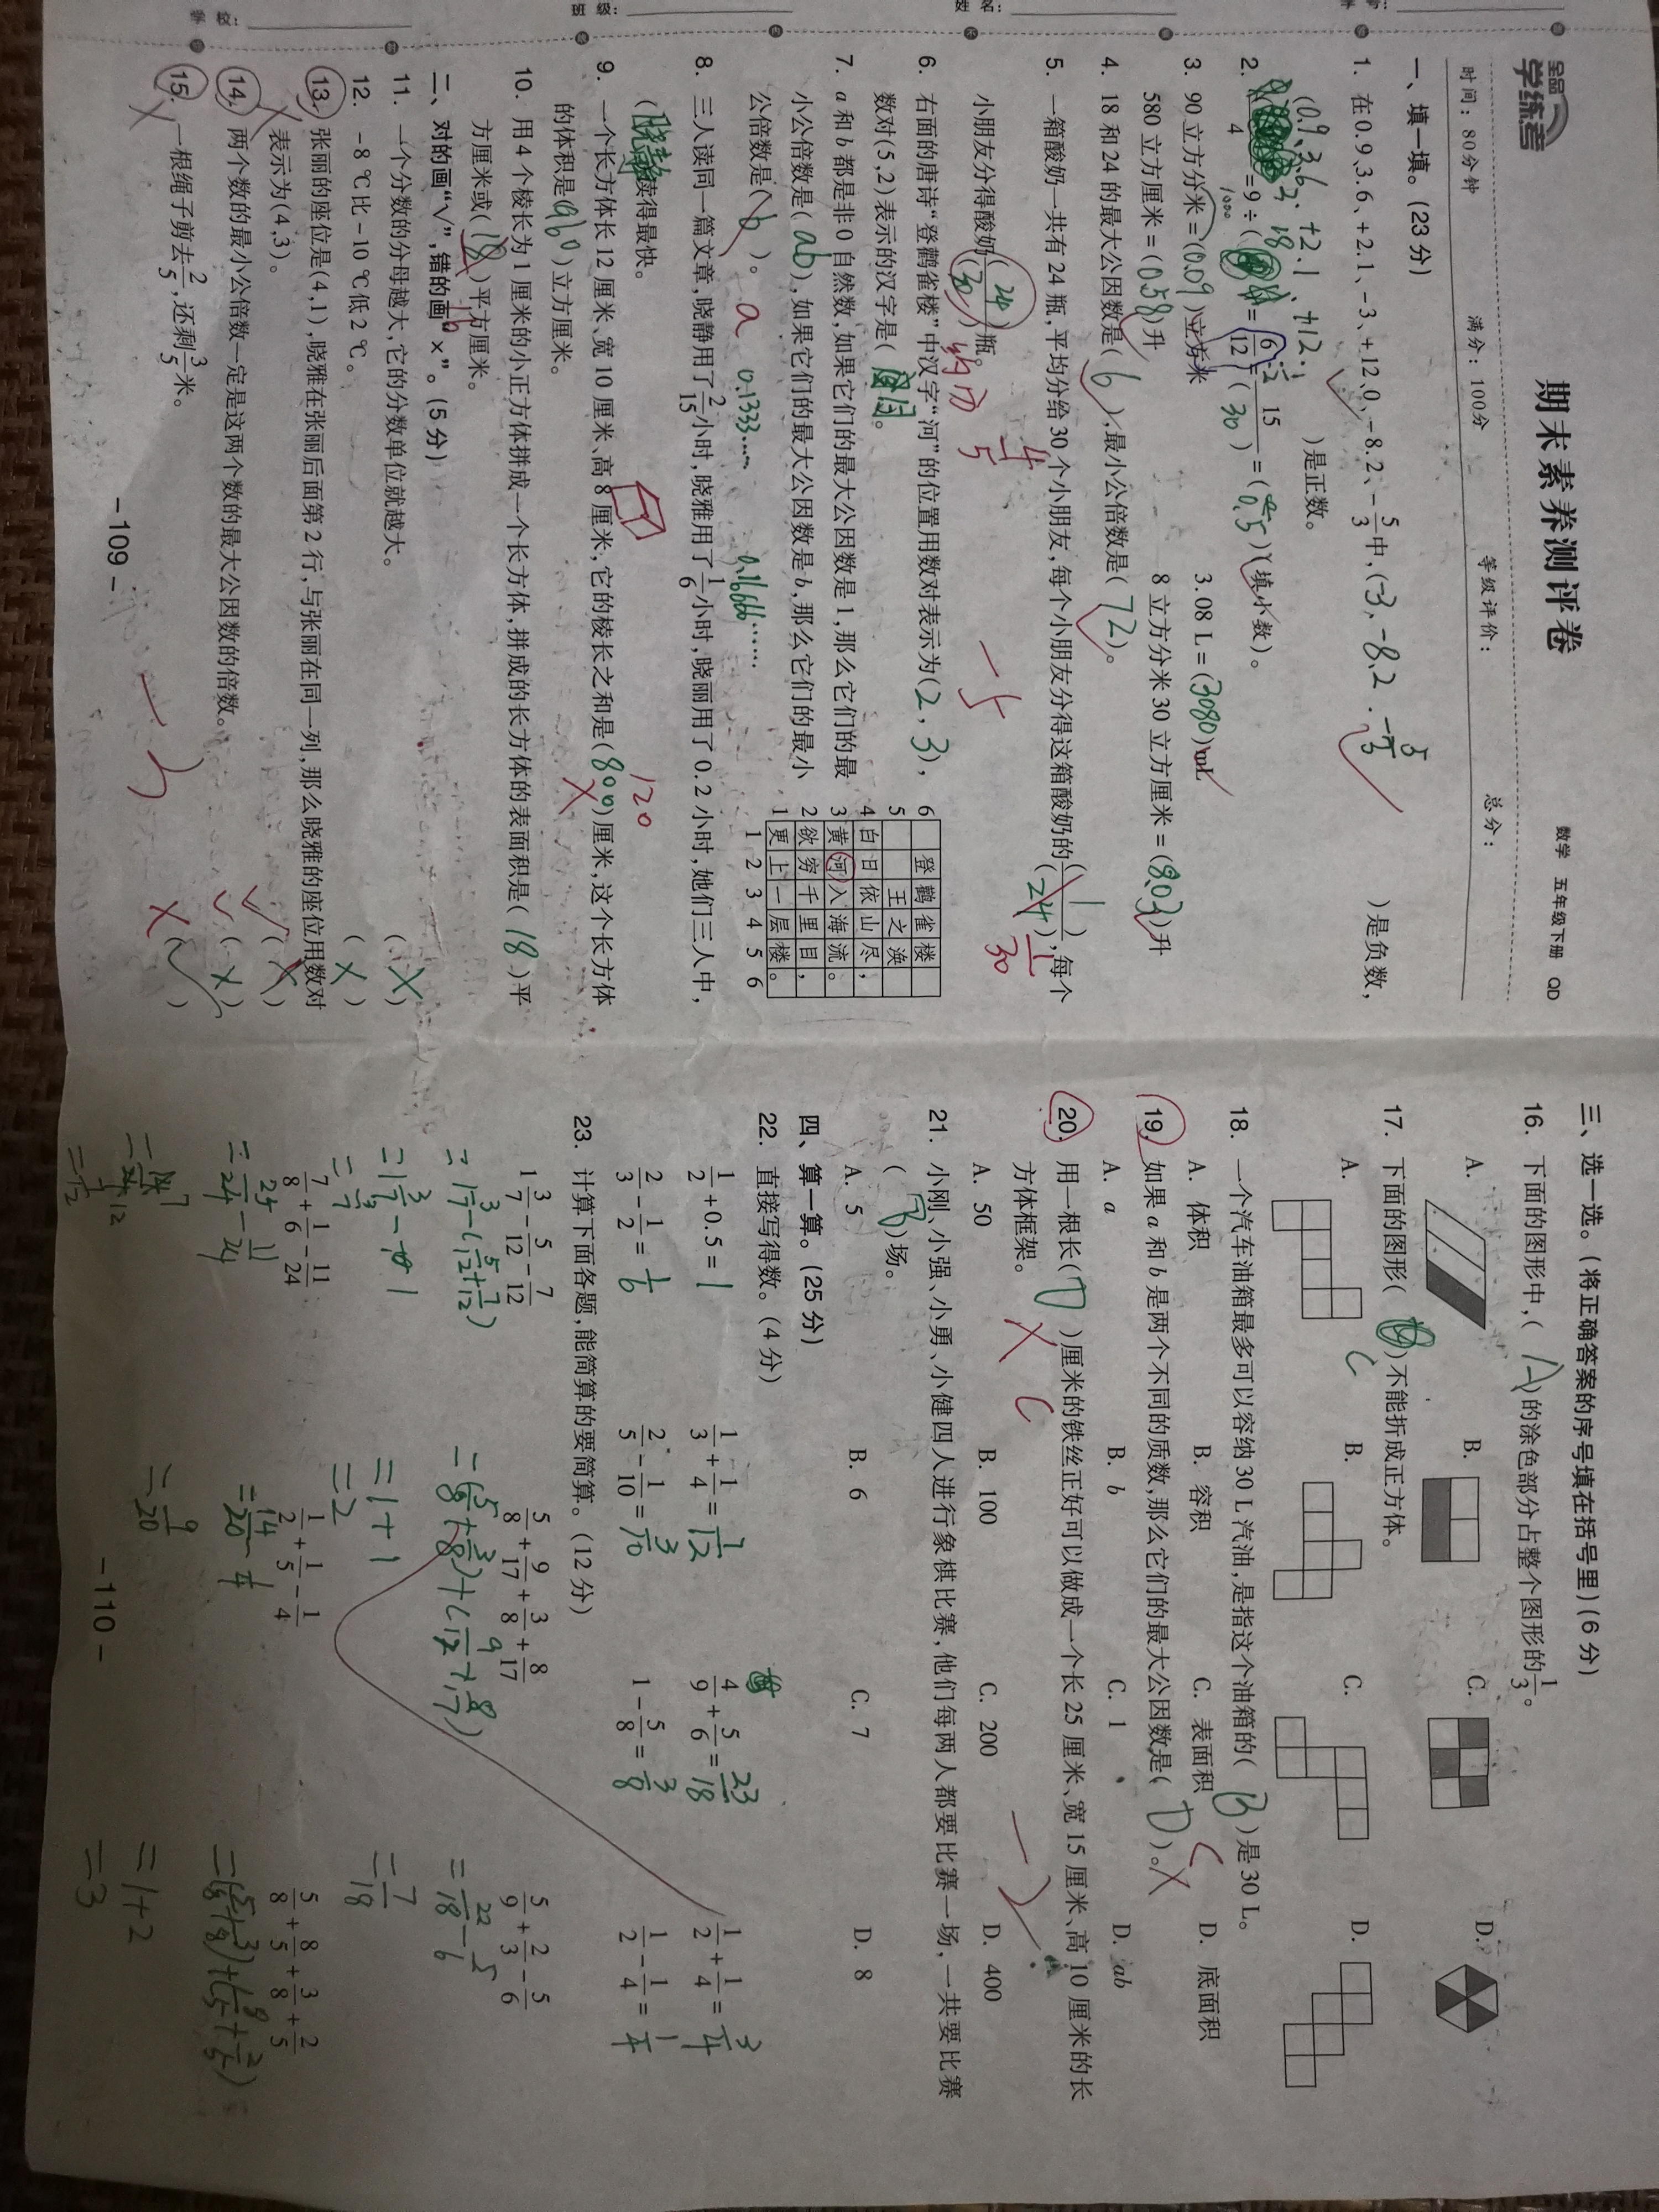 全品
学练考
期末素养测评卷
数学 五年级下册 QD
时间：80分钟 满分：100分 等级评价： 总分：
一、填一填。(23 分)
1. 在 0.9、3.6、+2.1、-3、+12、0、-8.2、-5/3中,(-3、-8.2、-5/3)是负数，
(0.9、3.6、+2.1、+12)是正数。
2. 4 =9÷( )=6/12=15/(30)=(0.5)(填小数)。
3. 90 立方分米=(0.09)立方米 3.08 L=(3080)mL
1000
580 立方厘米=(0.58)升 8 立方分米 30 立方厘米=(8.03)升
4. 18 和 24 的最大公因数是(6),最小公倍数是(72)。
5. 一箱酸奶一共有 24 瓶,平均分给 30 个小朋友,每个小朋友分得这箱酸奶的(1)/(24),每个
1/30
小朋友分得酸奶(24)/(30)瓶。
4/5
6. 右面的唐诗“登鹳雀楼”中汉字“河”的位置用数对表示为(2,3),
数对(5,2)表示的汉字是(目)。
6 登鹳雀楼
5 王之涣
4 白日依山尽，
3 黄河入海流。
2 欲穷千里目，
1 更上一层楼。
1 2 3 4 5 6
7. a 和 b 都是非 0 自然数,如果它们的最大公因数是 1,那么它们的最
小公倍数是(ab),如果它们的最大公因数是 b,那么它们的最小
公倍数是(b)。 a
0.1333…… 0.1666……
8. 三人读同一篇文章,晓静用了2/15小时,晓雅用了1/6小时,晓丽用了 0.2 小时,她们三人中，
(晓静)读得最快。
9. 一个长方体长 12 厘米、宽 10 厘米、高 8 厘米,它的棱长之和是(800)厘米,这个长方体
120
的体积是(960)立方厘米。
10. 用 4 个棱长为 1 厘米的小正方体拼成一个长方体,拼成的长方体的表面积是(18)平
方厘米或(18)平方厘米。
16
二、对的画“√”,错的画“×”。(5 分)
11. 一个分数的分母越大,它的分数单位就越大。 (×)
12. -8 ℃比 -10 ℃低 2 ℃。 (×)
13. 张丽的座位是(4,1),晓雅在张丽后面第 2 行,与张丽在同一列,那么晓雅的座位用数对
表示为(4,3)。 (×)
14. 两个数的最小公倍数一定是这两个数的最大公因数的倍数。 (×)
15. 一根绳子剪去2/5,还剩3/5米。 (√)
- 109 -
三、选一选。(将正确答案的序号填在括号里)(6 分)
16. 下面的图形中,(A)的涂色部分占整个图形的1/3。
A. B. C. D.
17. 下面的图形( )不能折成正方体。
C
A. B. C. D.
18. 一个汽车油箱最多可以容纳 30 L 汽油,是指这个油箱的(B)是 30 L。
A. 体积 B. 容积 C. 表面积 D. 底面积
19. 如果 a 和 b 是两个不同的质数,那么它们的最大公因数是(D)。
C
A. a B. b C. 1 D. ab
20. 用一根长(D)厘米的铁丝正好可以做成一个长 25 厘米、宽 15 厘米、高 10 厘米的长
方体框架。
C
A. 50 B. 100 C. 200 D. 400
21. 小刚、小强、小勇、小健四人进行象棋比赛,他们每两人都要比赛一场,一共要比赛
(B)场。
A. 5 B. 6 C. 7 D. 8
四、算一算。(25 分)
22. 直接写得数。(4 分)
1/2+0.5=1 1/3+1/4=7/12 4/9+5/6=23/18 1/2+1/4=3/4
2/3-1/2=1/6 2/5-1/10=3/10 1-5/8=3/8 1/2-1/4=1/4
23. 计算下面各题,能简算的要简算。(12 分)
1 3/7-5/12-7/12 5/8+9/17+3/8+8/17 5/9+2/3-5/6
=1 3/7-(5/12+7/12) =(5/8+3/8)+(9/17+8/17) =22/18-5/6
=1 3/7-1 =1+1 =7/18
=3/7 =2
7/8+1/6-11/24 1/2+1/5-1/4 5/8+8/5+3/8+2/5
=25/24-11/24 =14/20-1/4 =(5/8+3/8)+(8/5+2/5)
=9/20 =1+2
=7/12 =3
- 110 -